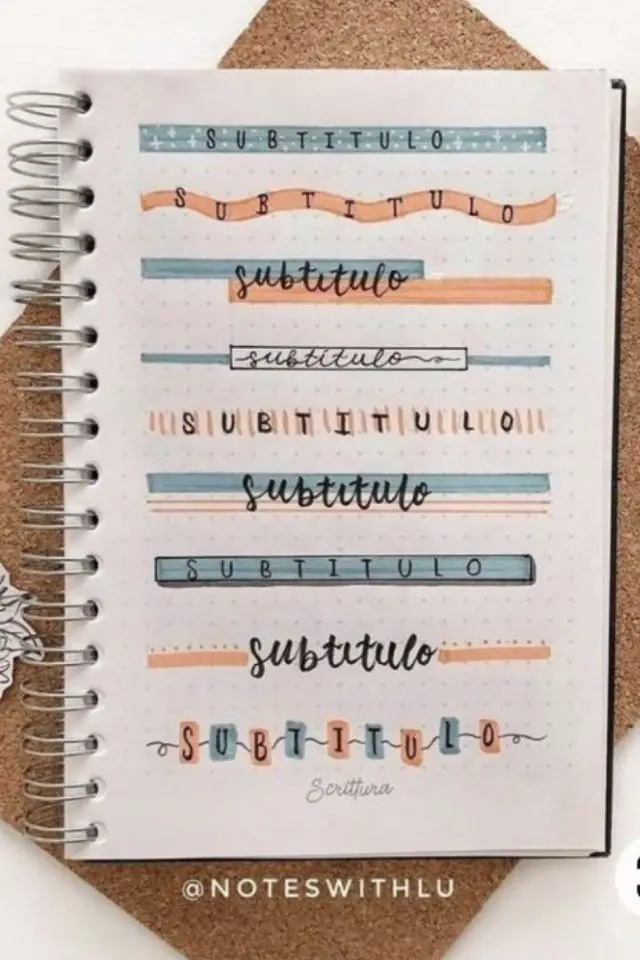 SUBTITULO
SUBTITULO
subtitulo
subtitulo
SUBTITULO
subtitulo
SUBTITULO
subtitulo
SUBTITULO
Scrittura
@NOTESWITHLU